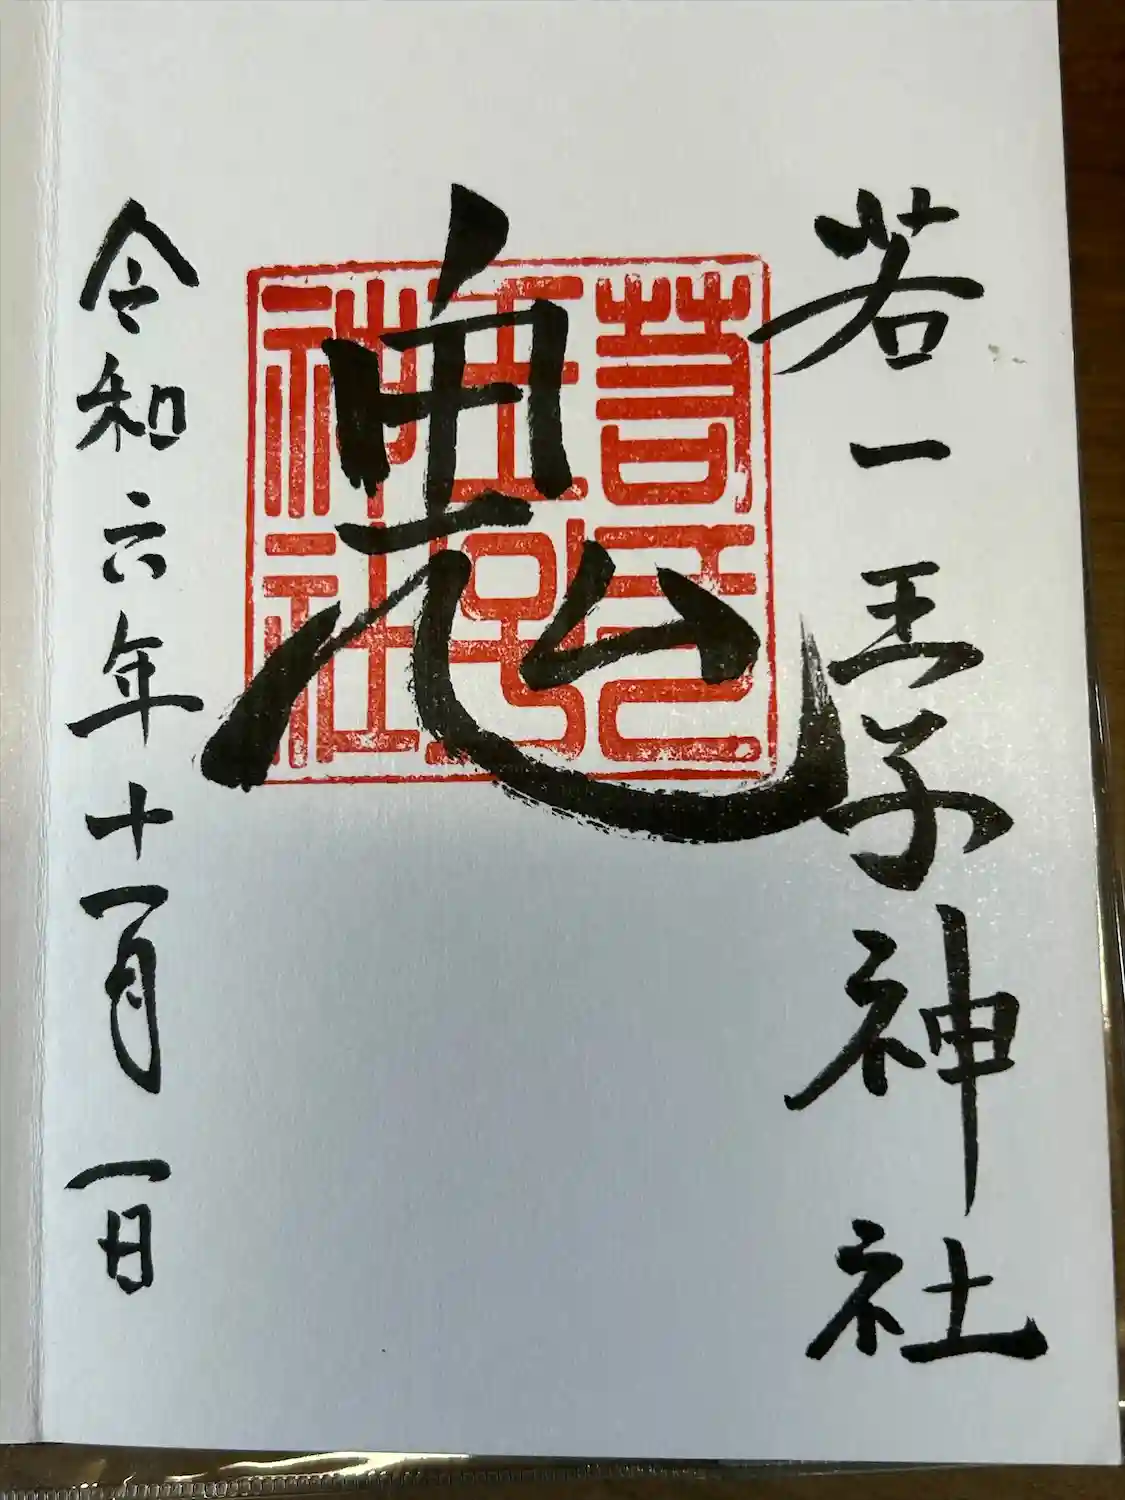 若一王子神社
若
王子
神社
令和六年十一月一日